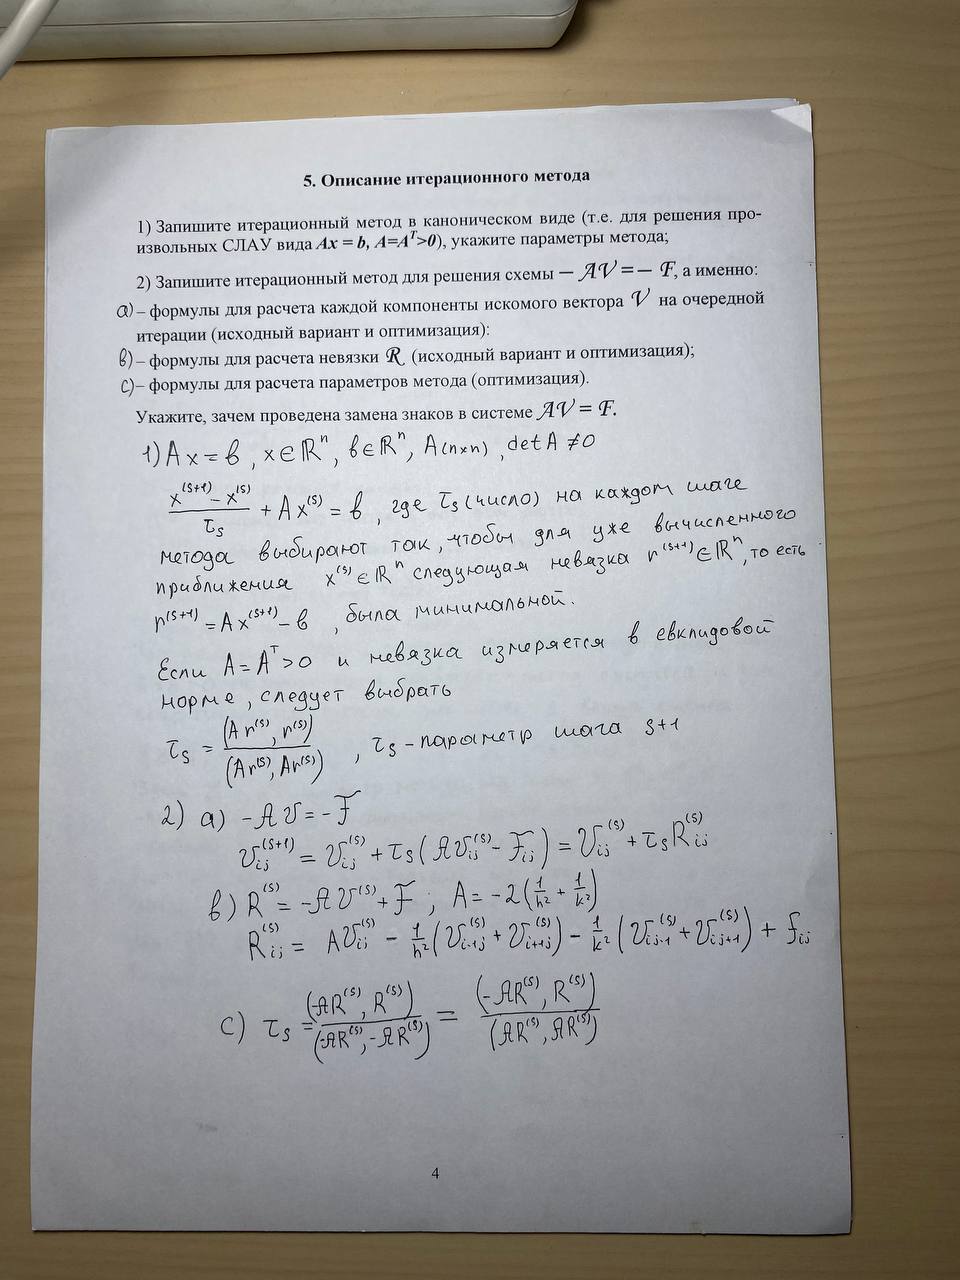 5. Описание итерационного метода
1) Запишите итерационный метод в каноническом виде (т.е. для решения про-
извольных СЛАУ вида Ax = b, A=Aᵀ>0), укажите параметры метода;
2) Запишите итерационный метод для решения схемы – AV = – F, а именно:
a) – формулы для расчета каждой компоненты искомого вектора V на очередной
итерации (исходный вариант и оптимизация):
b) – формулы для расчета невязки R (исходный вариант и оптимизация);
c) – формулы для расчета параметров метода (оптимизация).
Укажите, зачем проведена замена знаков в системе AV = F.
1) Ax = b, x∈ℝⁿ, b∈ℝⁿ, A(n×n), det A ≠ 0
(x^(s+1) – x^(s))/τs + Ax^(s) = b, где τs (число) на каждом шаге
метода выбирают так, чтобы для уже вычисленного
приближения x^(s) ∈ ℝⁿ следующая невязка r^(s+1) ∈ ℝⁿ, то есть
r^(s+1) = Ax^(s+1) – b, была минимальной.
Если A = Aᵀ > 0 и невязка измеряется в евклидовой
норме, следует выбрать
τs = (Ar^(s), r^(s))/(Ar^(s), Ar^(s)), τs - параметр шага s+1
2) a) -AV = -F
Vij^(s+1) = Vij^(s) + τs(AVij^(s) – Fij) = Vij^(s) + τsRij^(s)
b) R^(s) = -AV^(s) + F; A = -2(1/h² + 1/k²)
Rij^(s) = AVij^(s) – 1/h²(Vi-1j^(s) + Vi+1j^(s)) – 1/k²(Vij-1^(s) + Vij+1^(s)) + fij
c) τs = (-AR^(s), R^(s))/(-AR^(s), -AR^(s)) = (-AR^(s), R^(s))/(AR^(s), AR^(s))
4